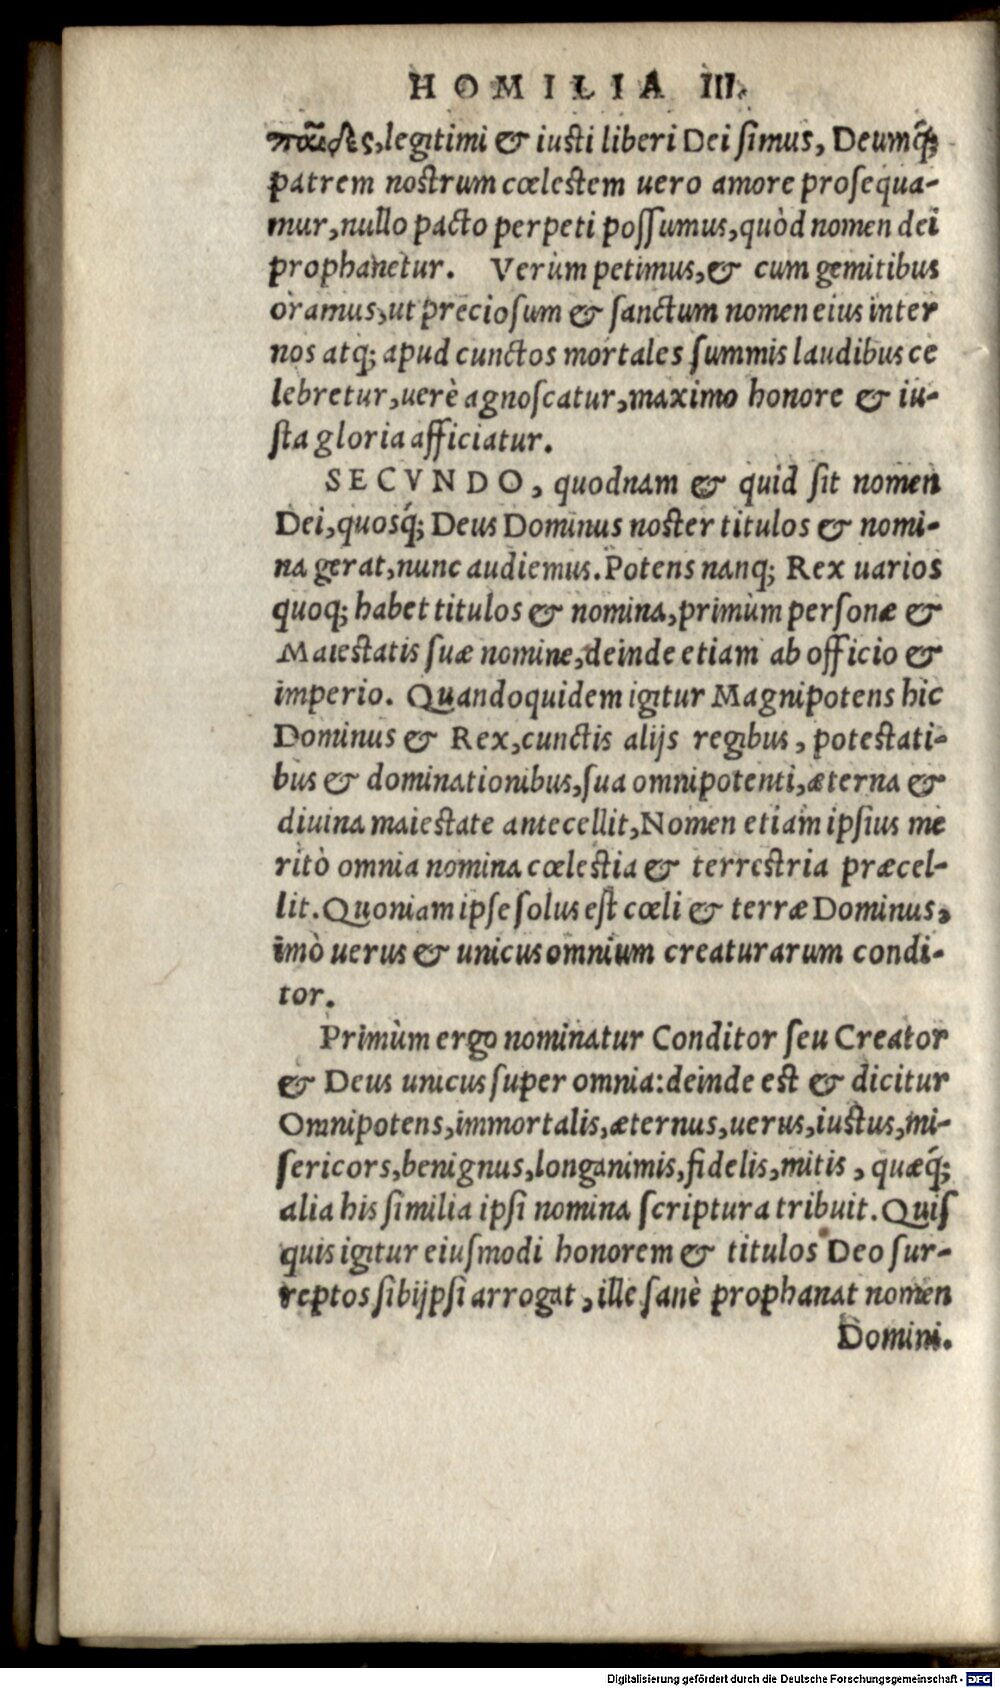 HOMILIA III.
παῖδες, legitimi & iusti liberi Dei simus, Deumq́;
patrem nostrum cœlestem uero amore prosequa-
mur, nullo pacto perpeti possumus, quòd nomen dei
prophanetur. Verùm petimus, & cum gemitibus
oramus, ut preciosum & sanctum nomen eius inter
nos atq; apud cunctos mortales summis laudibus ce
lebretur, uerè agnoscatur, maximo honore & iu-
sta gloria afficiatur.
SECVNDO, quodnam & quid sit nomen
Dei, quosq́; Deus Dominus noster titulos & nomi-
na gerat, nunc audiemus. Potens nanq; Rex uarios
quoq; habet titulos & nomina, primùm personæ &
Maiestatis suæ nomine, deinde etiam ab officio &
imperio. Quandoquidem igitur Magnipotens hic
Dominus & Rex, cunctis alijs regibus, potestati-
bus & dominationibus, sua omnipotenti, æterna &
diuina maiestate antecellit, Nomen etiam ipsius me
ritò omnia nomina cœlestia & terrestria præcel-
lit. Quoniam ipse solus est cœli & terræ Dominus,
imò uerus & unicus omnium creaturarum condi-
tor.
Primùm ergo nominatur Conditor seu Creator
& Deus unicus super omnia: deinde est & dicitur
Omnipotens, immortalis, æternus, uerus, iustus, mi-
sericors, benignus, longanimis, fidelis, mitis, quæq́;
alia his similia ipsi nomina scriptura tribuit. Quis
quis igitur eiusmodi honorem & titulos Deo sur-
reptos sibijpsi arrogat, ille sanè prophanat nomen
Domini.
Digitalisierung gefördert durch die Deutsche Forschungsgemeinschaft - DFG